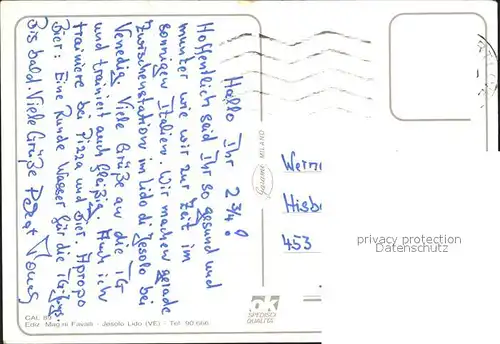 Hallo Ihr 2 3/4!
Hoffentlich seid Ihr so gesund und
munter wie wir zur Zeit im
sonnigen Italien. Wir machen gerade
Zwischenstation im Lido di Jesolo bei
Venedig. Viele Grüße an die TG
und trainiert auch fleißig. Auch ich
trainiere bei Pizza und Bier. Apropo
Bier: Eine Runde Wasser für die TG-Jungs.
Bis bald. Viele Grüße Peter
Garami MILANO
CAL 89
Ediz. Magris Favali - Jesolo Lido (VE) - Tel. 90.666
ok
SPEDISCI
QUALITÀ
453
privacy protection
Datenschutz